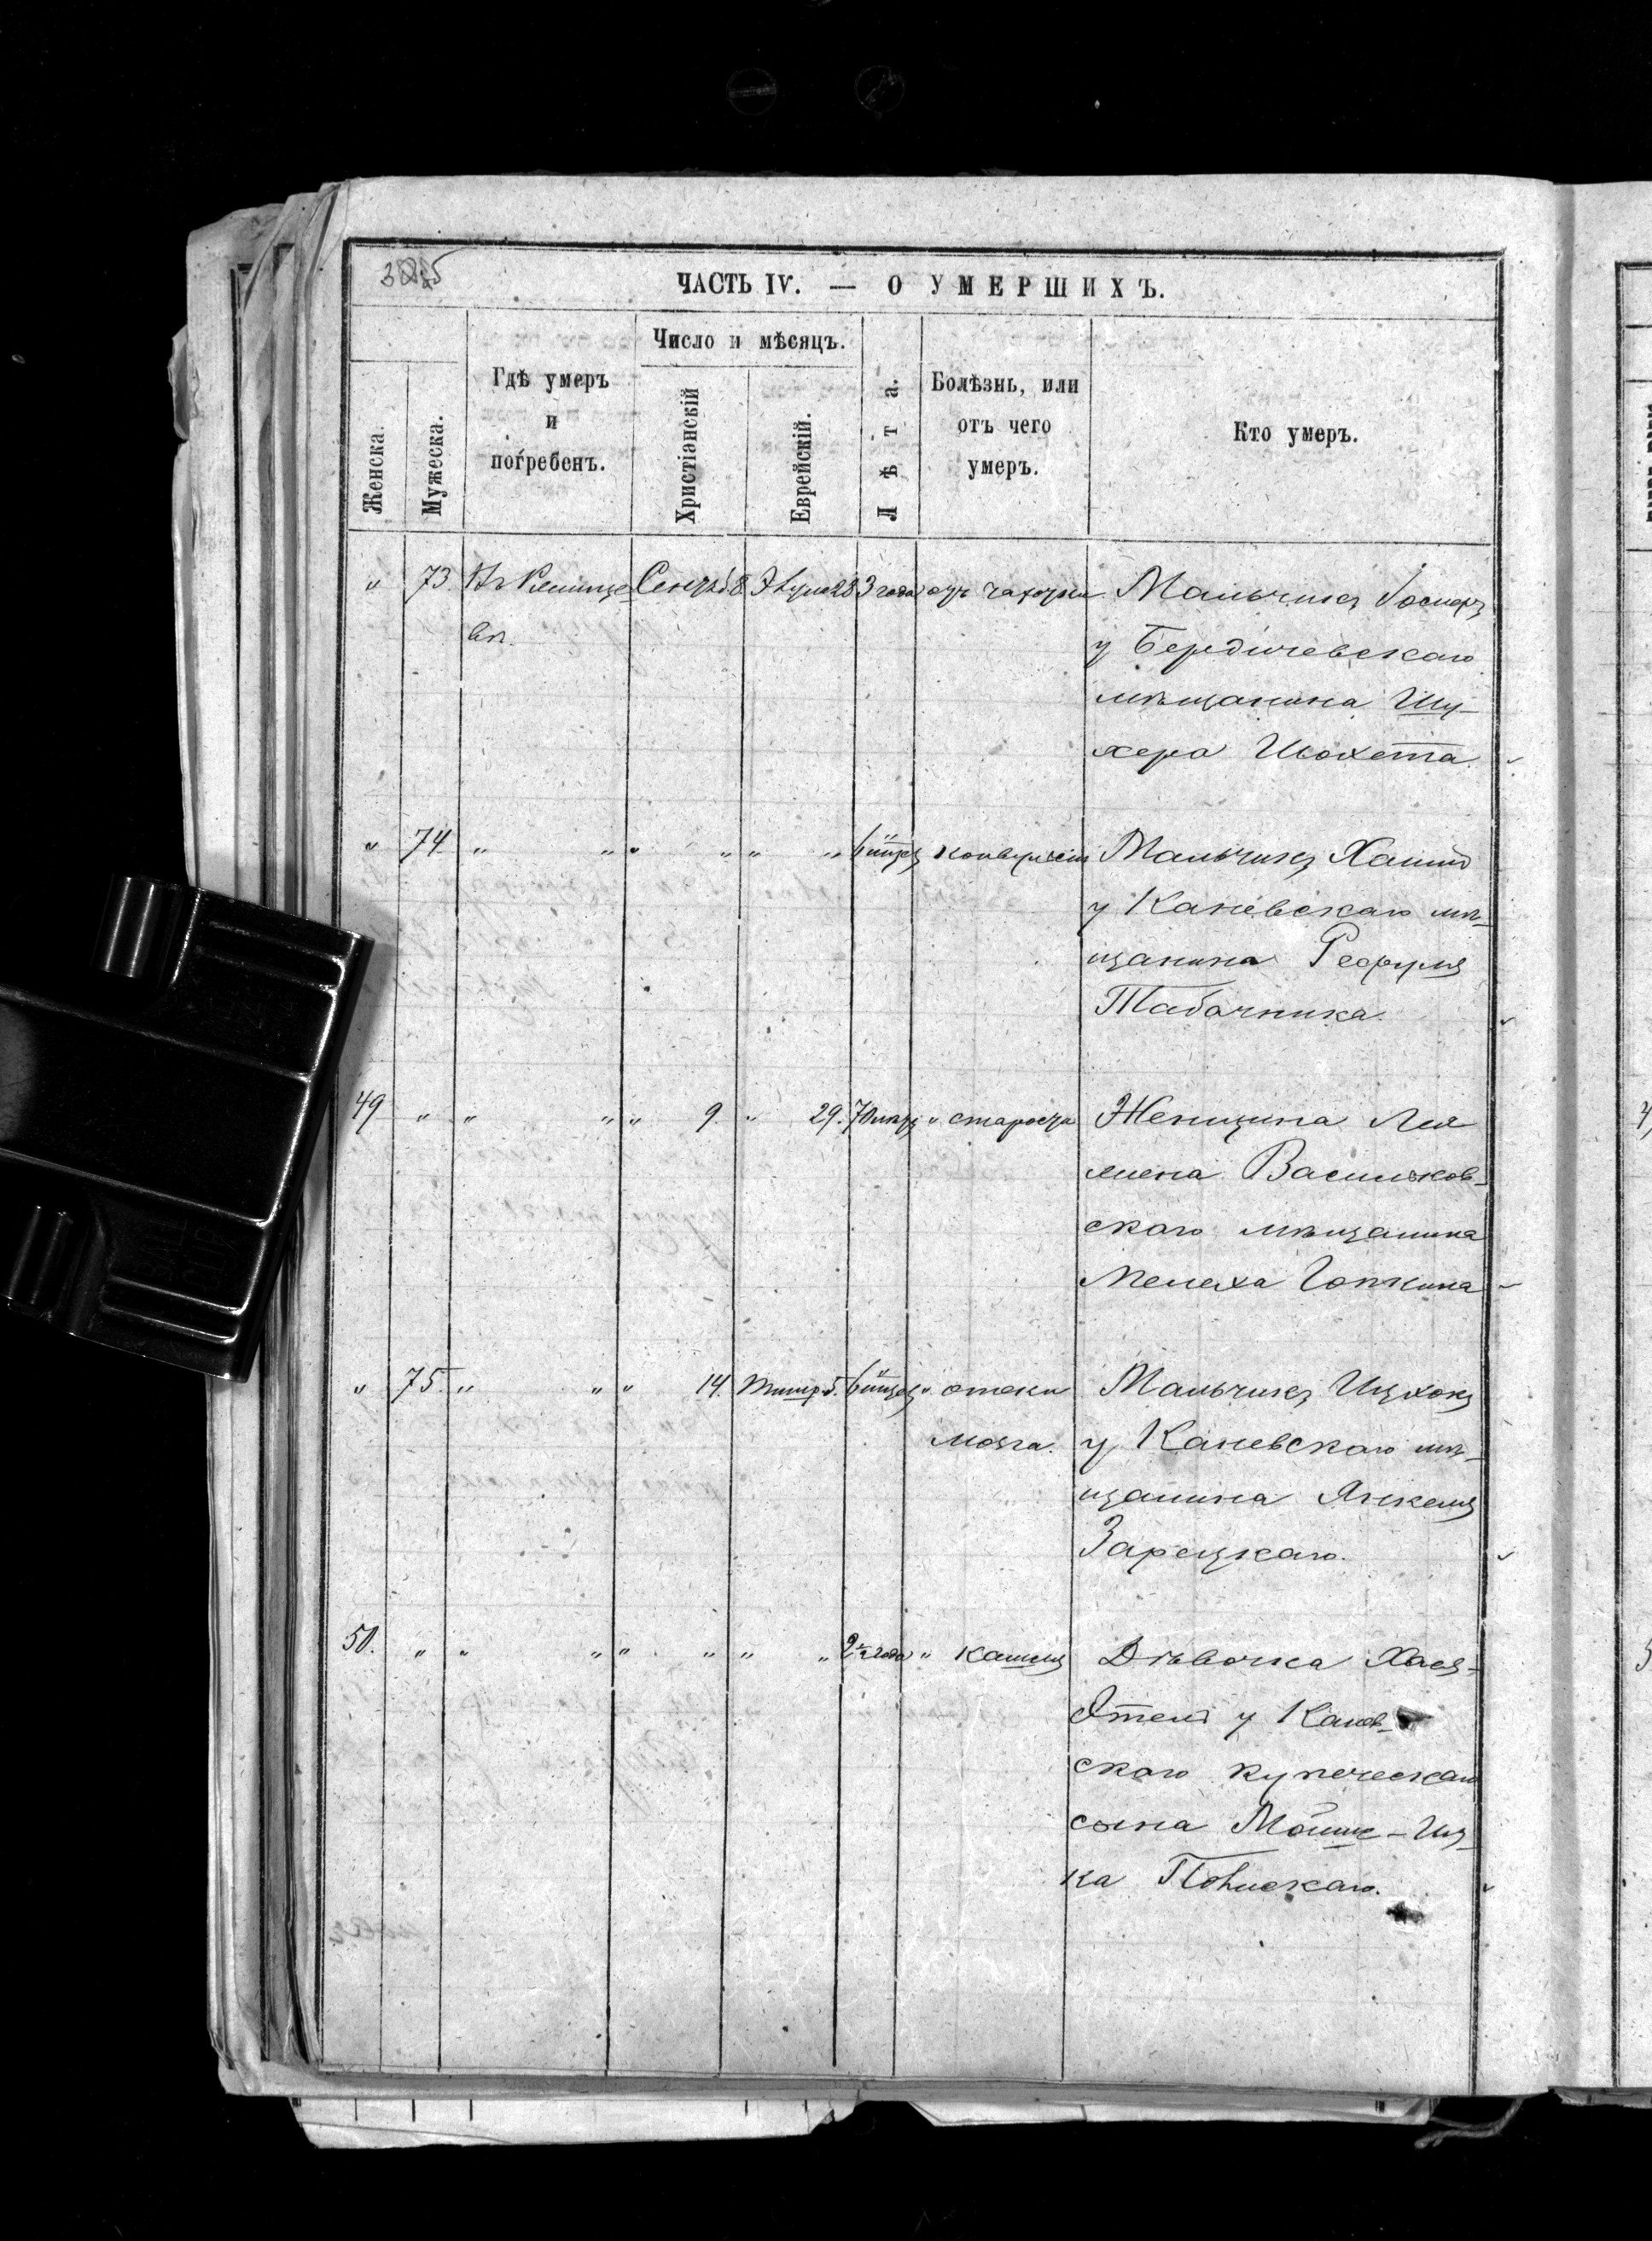 ЧАСТЬ IV. — О УМЕРШИХЪ.
Женска.
Мужеска.
Гдѣ умеръ
и
погребенъ.
Число и мѣсяцъ.
Христіанскій
Еврейскій.
Лѣта.
Болѣзнь, или
отъ чего
умеръ.
Кто умеръ.
" 73. Въ Сентяб 8 Элула 28 3 года отъ чахотки Мальчикъ Іосифъ
у Бердичевскаго
мѣщанина Шу-
хера Шохета.
" 74 " " " " " " Мальчикъ Хаимъ
у Каневскаго мѣ-
щанина Рефуля
Табачника.
49 " " " " 9. " 29. 70 лѣтъ " старости Женщина Лея
жена Васильков-
скаго мѣщанина
Мелеха
" 75. " " " 14. Тишр. 5. " отека Мальчикъ Ицхокъ
мозга. у Каневскаго мѣ-
щанина Янкеля
Зарецкаго.
50. " " " " " " " 2½ года " кашля Дѣвочка Хая-
Этель у Канев-
скаго купеческаго
сына Мойше-Иц-
ка